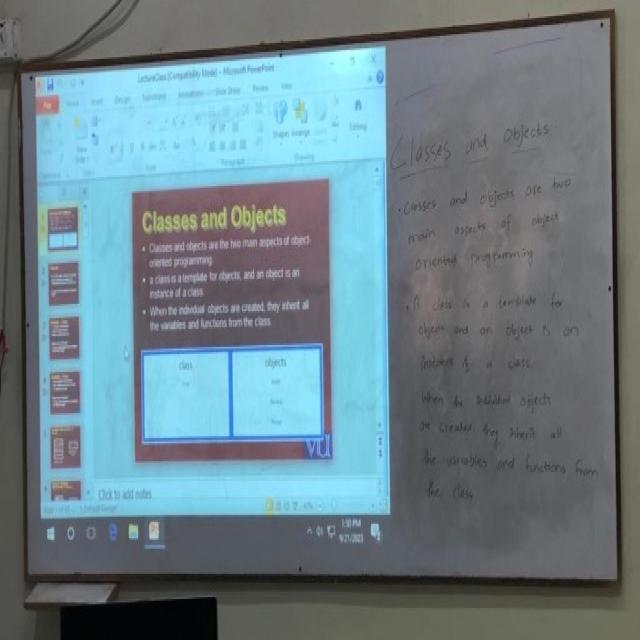 LectureClass [Compatibility Mode] - Microsoft PowerPoint
File Home Insert Design Transitions Animations Slide Show Review View
Shapes Arrange Editing
Paragraph Drawing
Classes and Objects
• Classes and objects are the two main aspects of object-
oriented programming
• a class is a template for objects, and an object is an
instance of a class
• When the individual objects are created, they inherit all
the variables and functions from the class.
class objects
VU
Click to add notes
1:30 PM
9/21/2023
Classes and Objects
• Classes and objects are two
main aspects of object
oriented programming
• A class is a template for
objects and an object is an
instance of a class
When the individual objects
are created they inherit all
the variables and functions from
the class